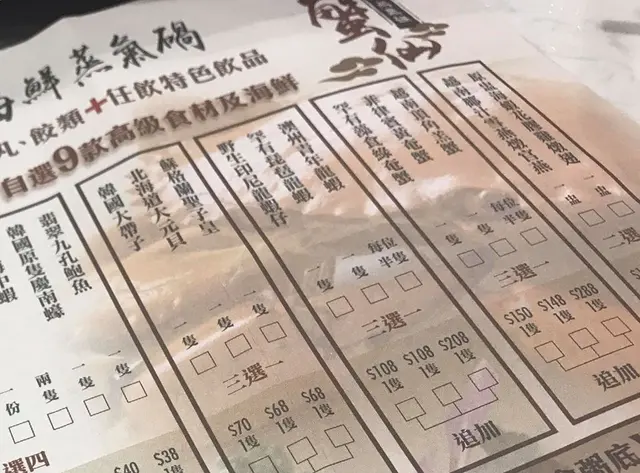 鮮蒸氣鍋
蟹仙
丸、餃類+任飲特色飲品
自選9款高級食材及海鮮
越南椰汁雪燕燉官燕
一盅
一盅
二選
菲律賓黃奄蟹
每位半隻
一隻
一隻
三選一
$150 1隻
$148 1隻
$288 1隻
追加
澳洲青年龍蝦
罕有琵琶龍蝦
野生印尼龍蝦仔
每位半隻
一隻
一隻
三選一
$108 1隻
$108 1隻
$208 1隻
追加
蘇格蘭聖子皇
北海道大元貝
韓國大帶子
一隻
一隻
一隻
三選一
$70 1隻
$68 1隻
$68 1隻
翡翠九孔鮑魚
韓國原隻慶南蠔
中蝦
一隻
一隻
兩隻
一份
選四
$40
$38 1隻